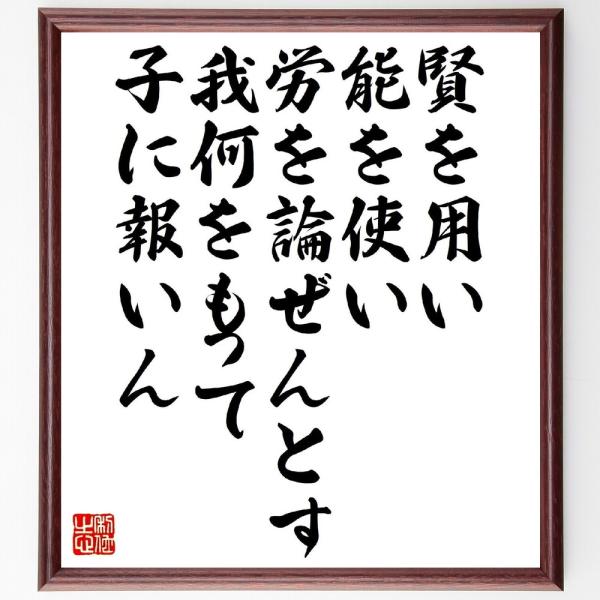 賢を用い
能を使い
労を論ぜんとす
我何をもって
子に報いん